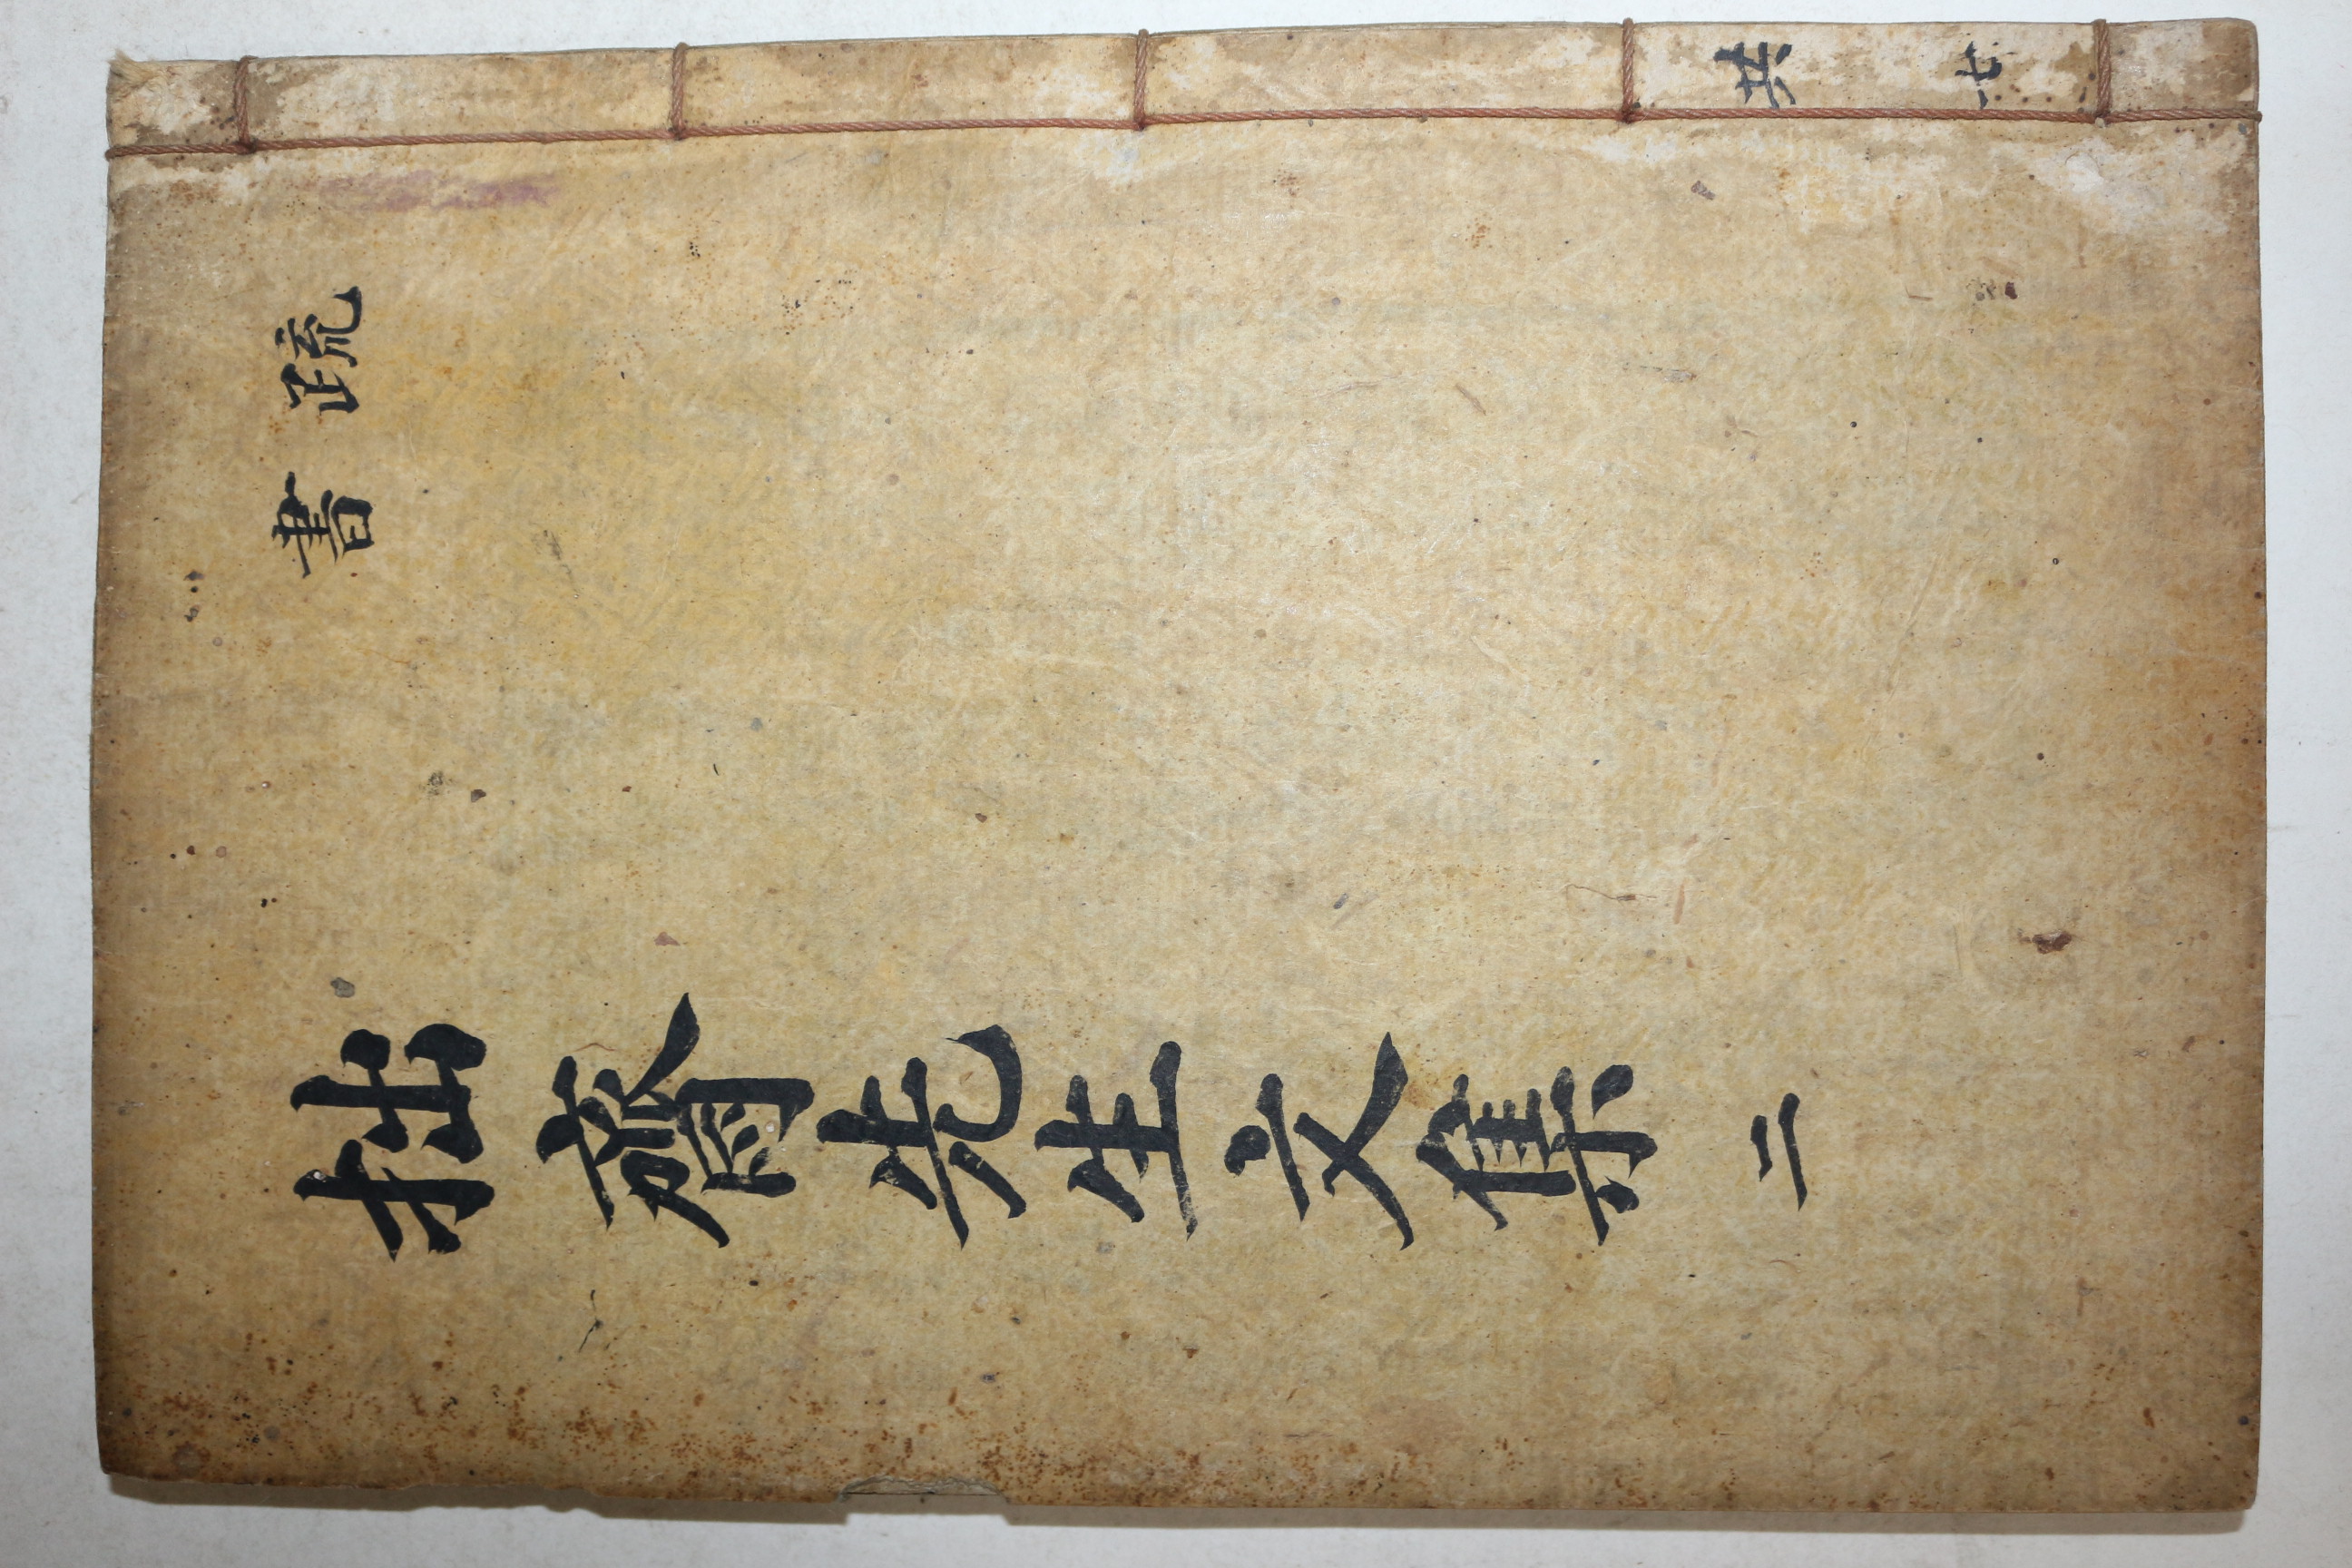 疏
書
拙齋先生文集 二
共七